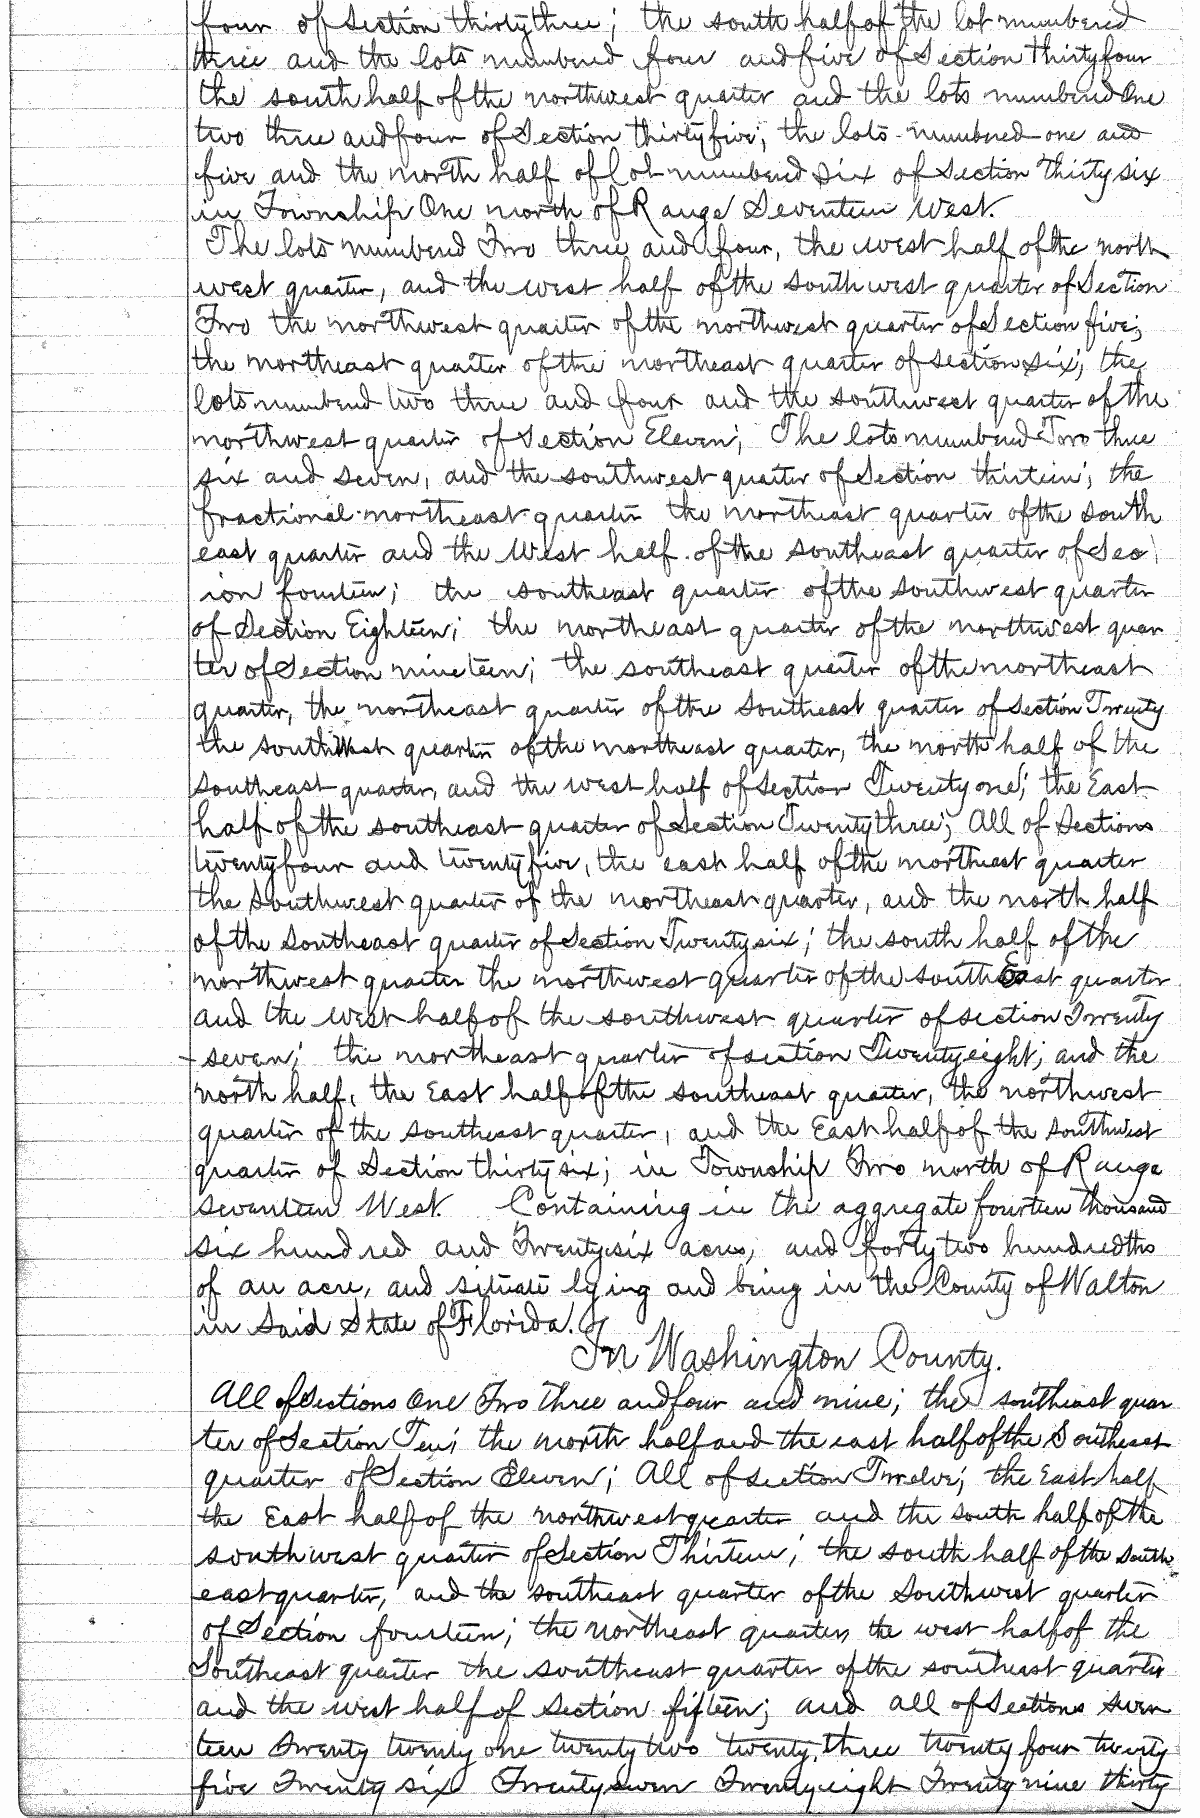 four of Section thirty three; the south half of the lot numbered
three and the lots numbered four and five of Section Thirty four
the south half of the northwest quarter and the lots numbered One
two three and four of Section thirty five; the lots numbered one and
five and the north half of Lot numbered six of Section thirty six
in Township One north of Range Seventeen West.
The lots numbered Two three and four, the west half of the north
west quarter, and the west half of the south west quarter of Section
Two the northwest quarter of the northwest quarter of Section five;
the northeast quarter of the northeast quarter of section six; the
lots numbered two three and four and the southwest quarter of the
northwest quarter of Section Eleven; The lots numbered Two three
six and seven, and the southwest quarter of Section thirteen; the
fractional northeast quarter the northeast quarter of the south
east quarter and the West half of the southeast quarter of Sec
ion fourteen; the southeast quarter of the southwest quarter
of Section Eighteen; the northeast quarter of the northwest quar
ter of Section nineteen; the southeast quarter of the northeast
quarter, the northeast quarter of the southeast quarter of Section Twenty
the southwest quarter of the northeast quarter, the north half of the
southeast quarter, and the west half of Section Twenty one; the East
half of the southeast quarter of Section Twenty three; All of Sections
twenty four and twenty five, the east half of the northeast quarter
the southwest quarter of the northeast quarter, and the north half
of the Southeast quarter of Section Twenty six; the south half of the
northwest quarter the northwest quarter of the southEast quarter
and the west half of the southwest quarter of section Twenty
seven; the northeast quarter of section Twenty eight; and the
north half, the East half of the southeast quarter, the northwest
quarter of the southeast quarter, and the East half of the southwest
quarter of Section thirty six; in Township Two north of Range
seventeen West. Containing in the aggregate fourteen thousand
six hundred and Twenty six acres, and forty two hundredths
of an acre, and situate lying and being in the County of Walton
in said State of Florida.
In Washington County.
All of Sections One Two three and four and nine; the southeast quar
ter of Section Ten; the north half and the east half of the Southeast
quarter of Section Eleven; All of section Twelve; the East half
the East half of the northwest quarter and the south half of the
southwest quarter of Section Thirteen; the south half of the south
east quarter, and the southeast quarter of the Southwest quarter
of Section fourteen; the northeast quarter, the west half of the
Southeast quarter the southeast quarter of the southeast quarter
and the west half of section fifteen; and all of Sections seven
teen Twenty twenty one twenty two twenty three twenty four twenty
five Twenty six Twenty seven Twenty eight Twenty nine thirty